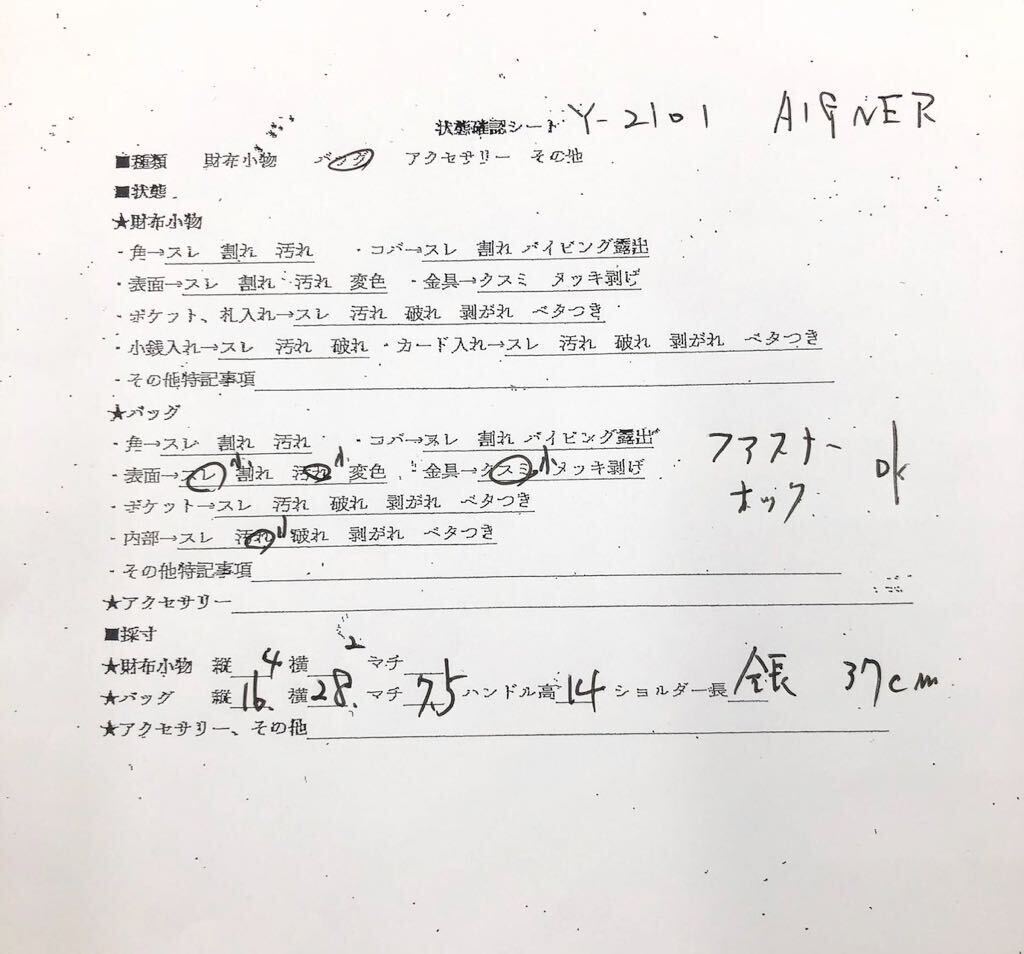 状態確認シート Y-2101 AIGNER
■種類 財布小物 バッグ アクセサリー その他
■状態
★財布小物
・角→スレ 割れ 汚れ ・コバ→スレ 割れ パイピング露出
・表面→スレ 割れ 汚れ 変色 ・金具→クスミ メッキ剥げ
・ポケット、札入れ→スレ 汚れ 破れ 剥がれ ベタつき
・小銭入れ→スレ 汚れ 破れ ・カード入れ→スレ 汚れ 破れ 剥がれ ベタつき
・その他特記事項
★バッグ
・角→スレ 割れ 汚れ ・コバ→スレ 割れ パイピング露出
・表面→スレ小 割れ 汚れ小 変色 ・金具→クスミ小 メッキ剥げ
ファスナー
ホック OK
・ポケット→スレ 汚れ 破れ 剥がれ ベタつき
・内部→スレ 汚れ小 破れ 剥がれ ベタつき
・その他特記事項
★アクセサリー
■採寸
★財布小物 縦 横 マチ
★バッグ 縦16.4 横28.2 マチ7.5 ハンドル高14 ショルダー長 全長 37cm
★アクセサリー、その他